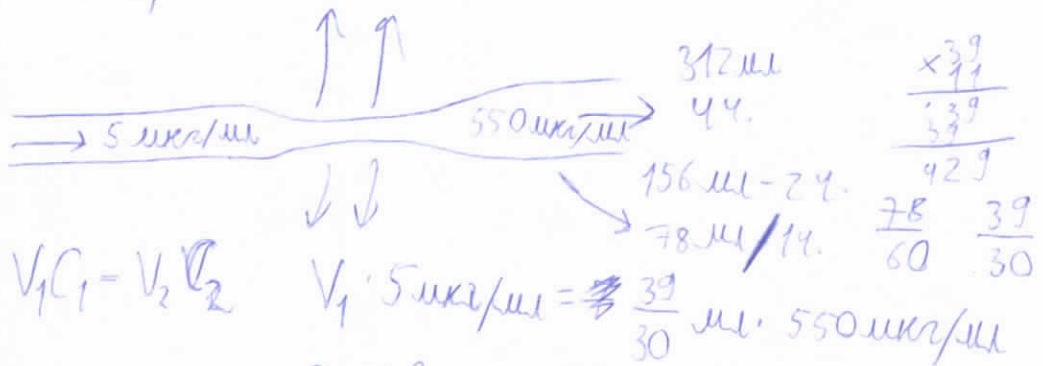 5 мкг/мл
550 мкг/мл
312 мл
4ч.
156 мл - 2ч.
78 мл/1ч.
78
60
39
30
× 39
11
39
39
429
V₁C₁ = V₂C₂
V₁ · 5 мкг/мл = 39/30 мл · 550 мкг/мл